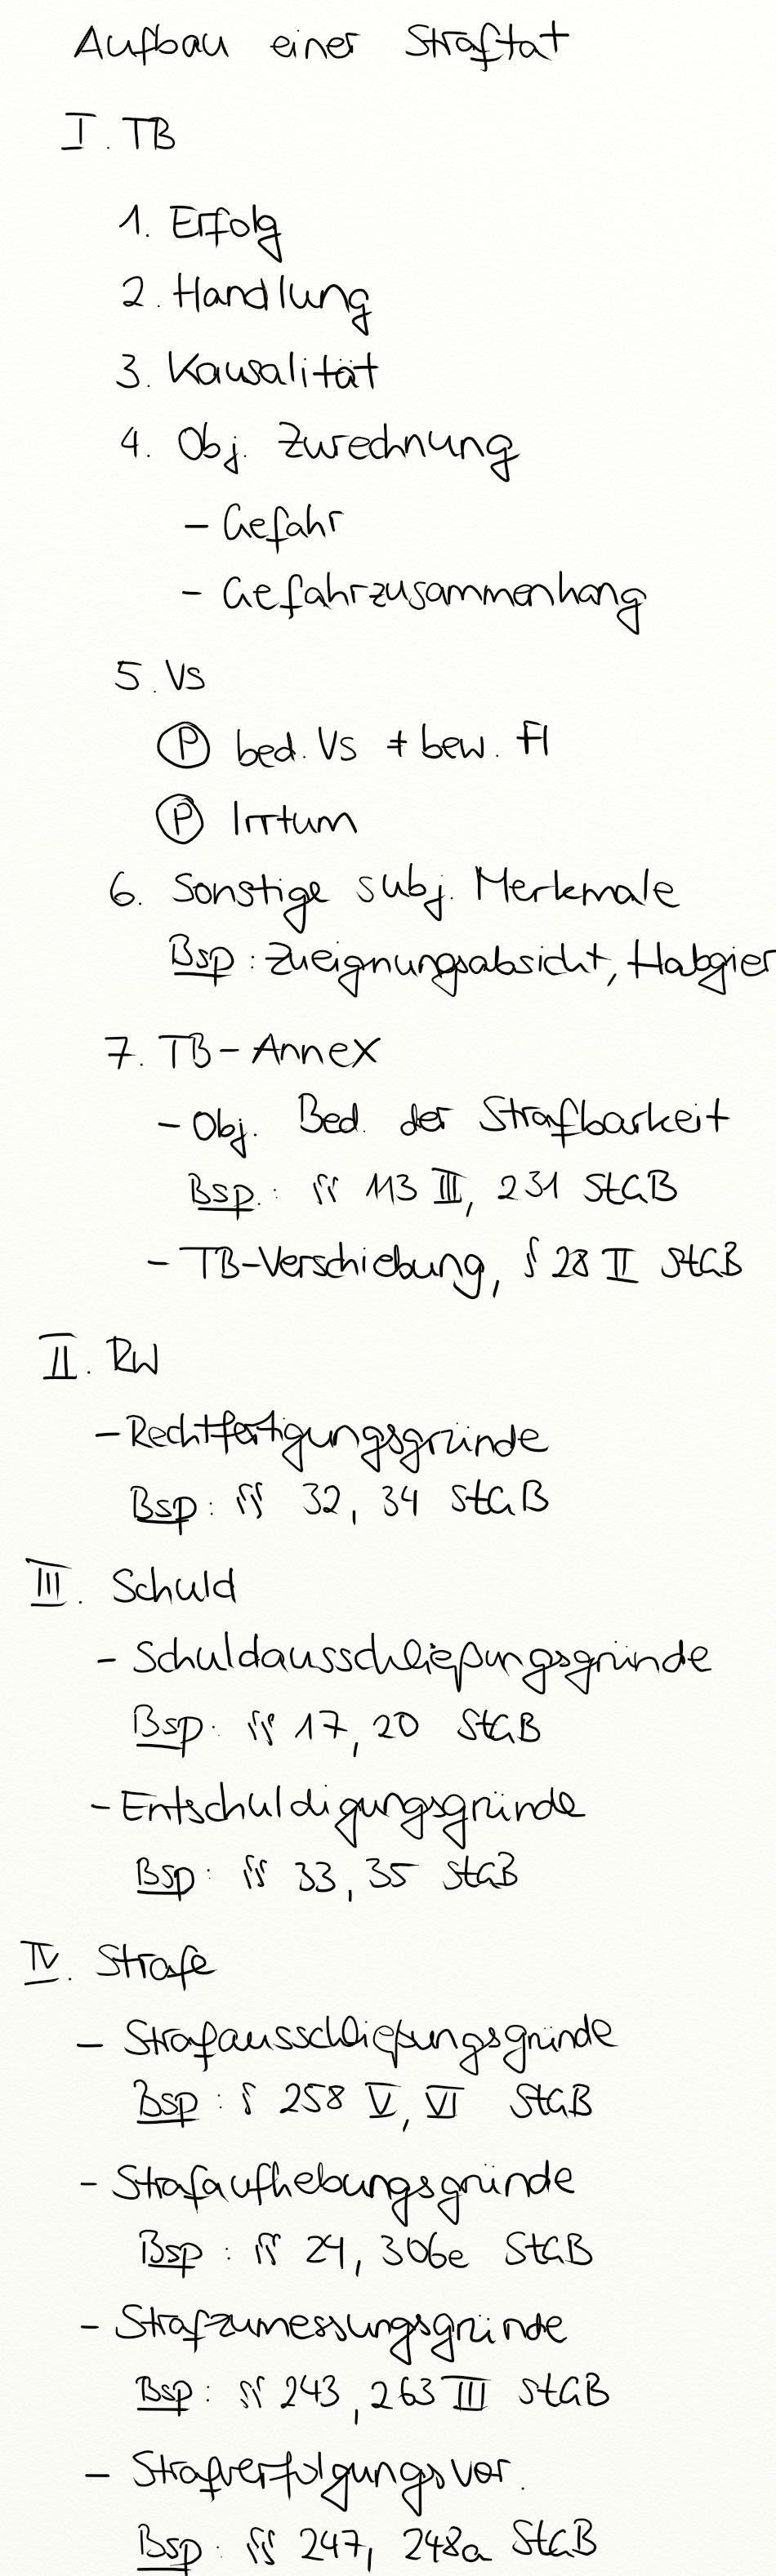 Aufbau einer Straftat
I. TB
1. Erfolg
2. Handlung
3. Kausalität
4. Obj. Zurechnung
- Gefahr
- Gefahrzusammenhang
5. Vs
Ⓟ bed. Vs ≠ bew. Fl
Ⓟ Irrtum
6. Sonstige subj. Merkmale
Bsp: Zueignungsabsicht, Habgier
7. TB-Annex
- Obj. Bed. der Strafbarkeit
Bsp.: §§ 113 III, 231 StGB
- TB-Verschiebung, § 28 II StGB
II. RW
- Rechtfertigungsgründe
Bsp: §§ 32, 34 StGB
III. Schuld
- Schuldausschließungsgründe
Bsp: §§ 17, 20 StGB
- Entschuldigungsgründe
Bsp: §§ 33, 35 StGB
IV. Strafe
- Strafausschließungsgründe
Bsp: § 258 V, VI StGB
- Strafaufhebungsgründe
Bsp: §§ 24, 306e StGB
- Strafzumessungsgründe
Bsp: §§ 243, 263 III StGB
- Strafverfolgungsvor.
Bsp: §§ 247, 248a StGB